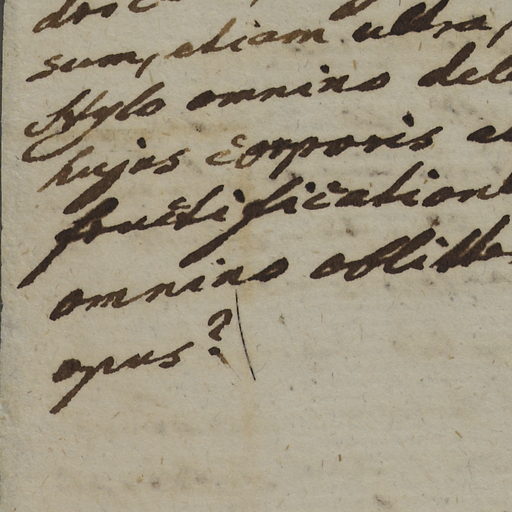 sum, etiam ultra,
Stylo omnino
hujus corporis
fructification
omnino
opus?